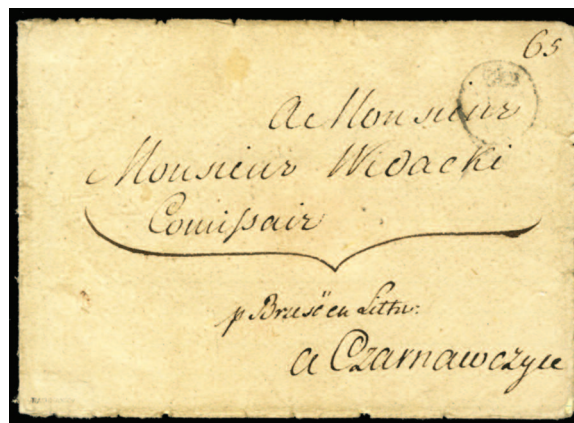 65
A Monsieur
Monsieur Widacki
Comißair
p Brzesć en Litthu:
a Czarnawczyce